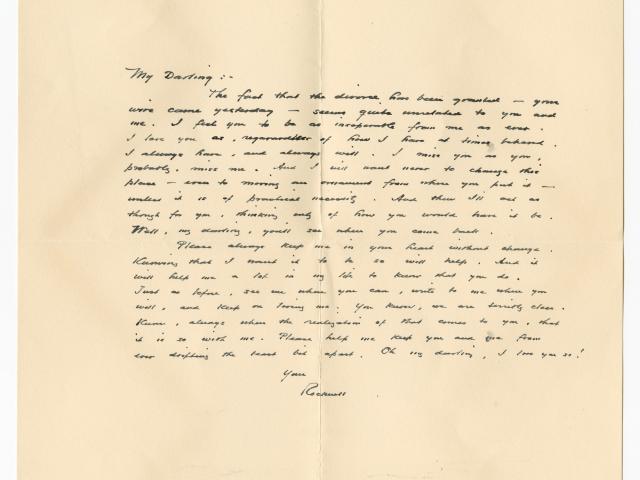 My Darling :-
The fact that the divorce has been granted — your
wire came yesterday — seems quite unrelated to you and
me. I feel you to be as inseparable from me as ever.
I love you as, regardless of how I have at times behaved,
I always have, and always will. I miss you as you,
probably, miss me. And I will want never to change this
place — even to moving an ornament from where you put it —
unless it is of practical necessity. And then I'll act as
though for you, thinking only of how you would have it be.
Well, my darling, you'll see when you come back.
Please always keep me in your heart without change.
Knowing that I want it to be so will help. And it
will help me a lot in my life to know that you do.
Just as before, see me when you can, write to me when you
will, and keep on loving me. You know, we are terribly close.
Know, always when the realization of that comes to you, that
it is so with me. Please help me keep you and me from
ever drifting the least bit apart. Oh my darling, I love you so!
Your
Rockwell